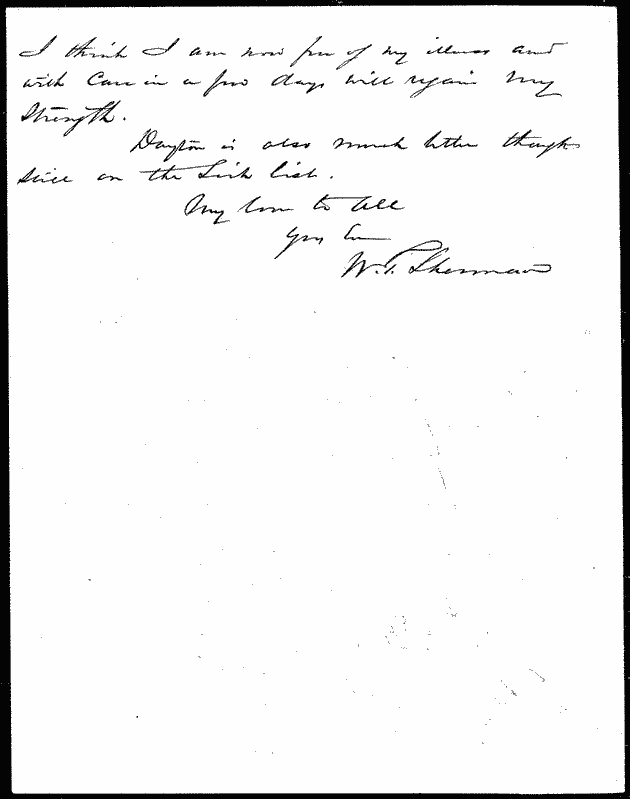 I think I am now free of my illness and
with Care in a few days will regain my
Strength.
Dayton is also much better though
still on the Sick list.
My love to all
Yrs Ever
W. T. Sherman